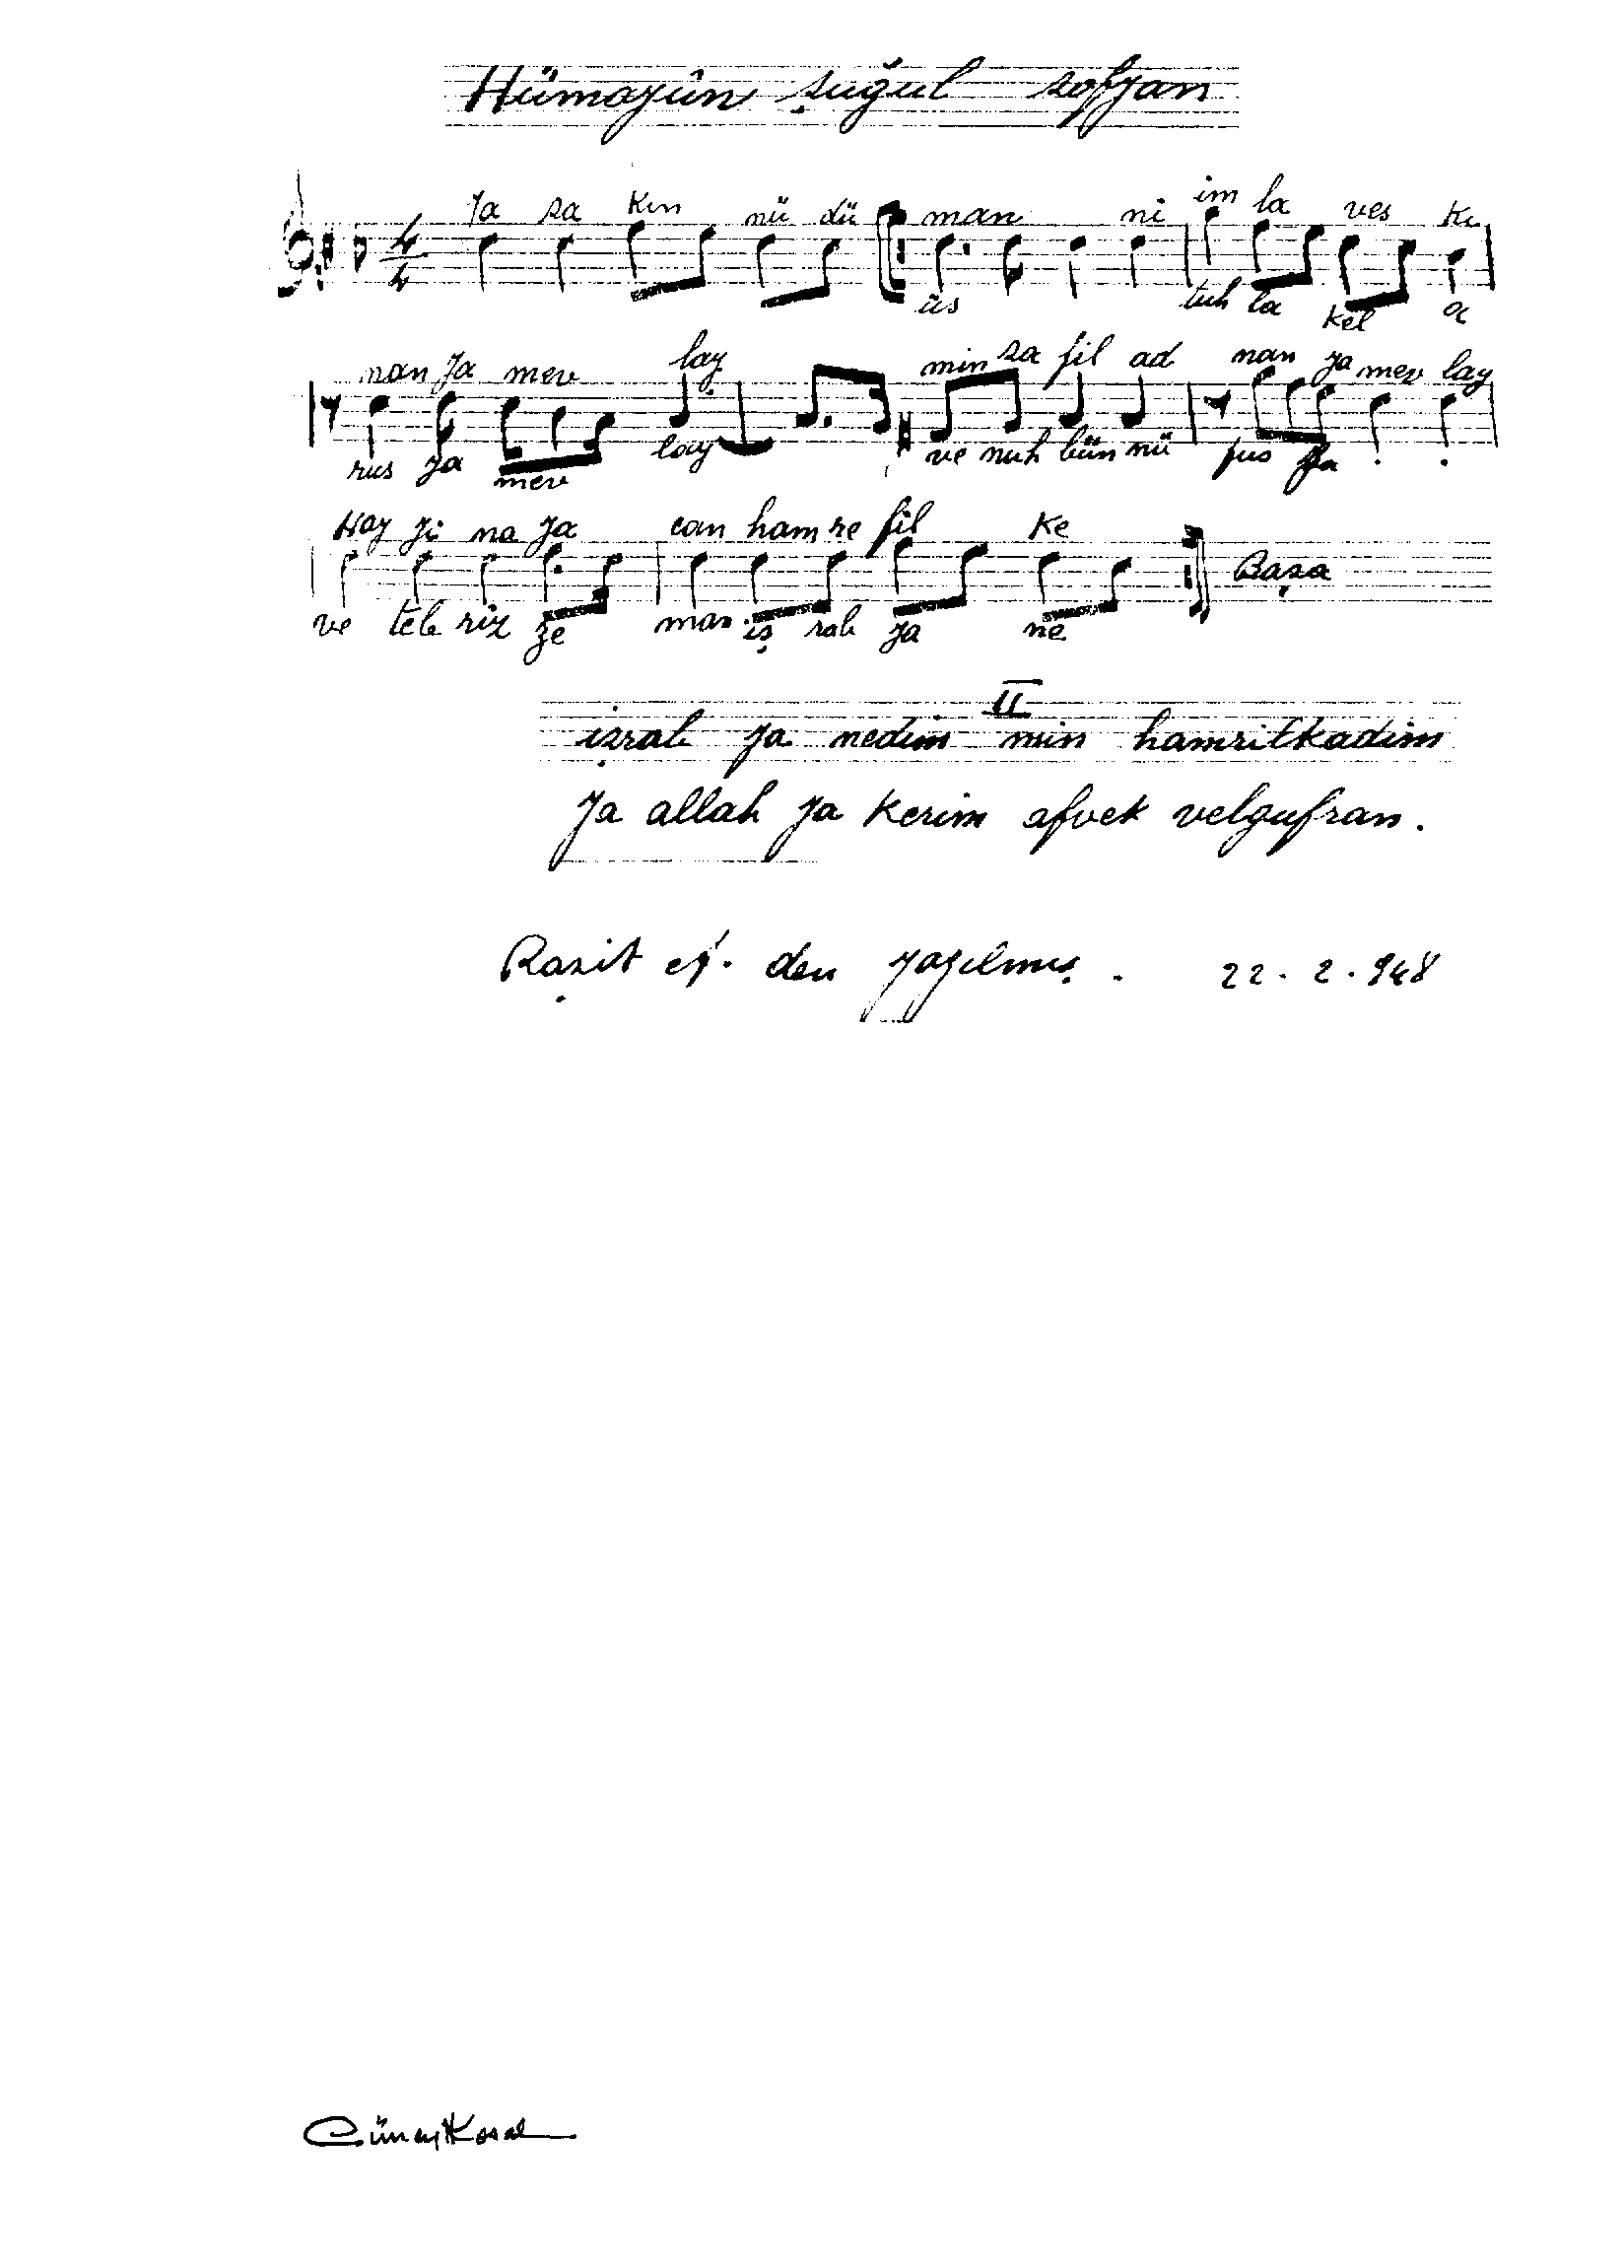 Hümayûn şuğul sofyan
4
4
Ya sa kın nü dü man ni im la ves ki
üs tuh la kel a
nan Ya mev lay min sa fil ad nan ya mev lay
rus ya mev lay ve nuh bün nü fus ya . .
Hay yi na ya can ham re fil Ke
ve teb riz ze man iş rab ya ne
Başa
II
işrab ya nedim min hamrilkadim
Ya allah ya Kerim afvek velgufran.
Raşit ef. den yazılmış. 22. 2. 948
Cüneyt Kosal